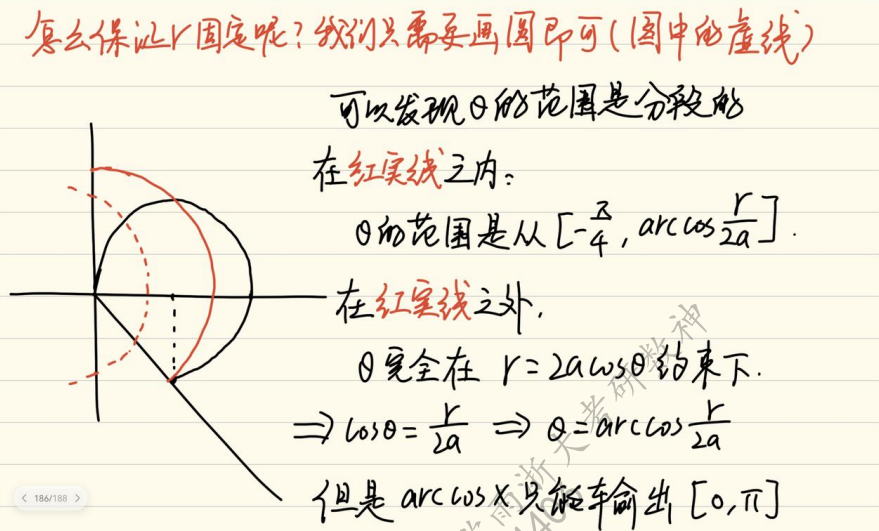 怎么保证r固定呢?我们只需要画圆即可(图中的虚线)
可以发现θ的范围是分段的
在红实线之内:
θ的范围是从[-π/4, arccos r/2a].
在红实线之外,
θ完全在 r=2acosθ约束下.
⇒ cosθ= r/2a ⇒ θ=arccos r/2a
但是 arccosx 只能输出 [0,π]
186/188
浙大考研数神